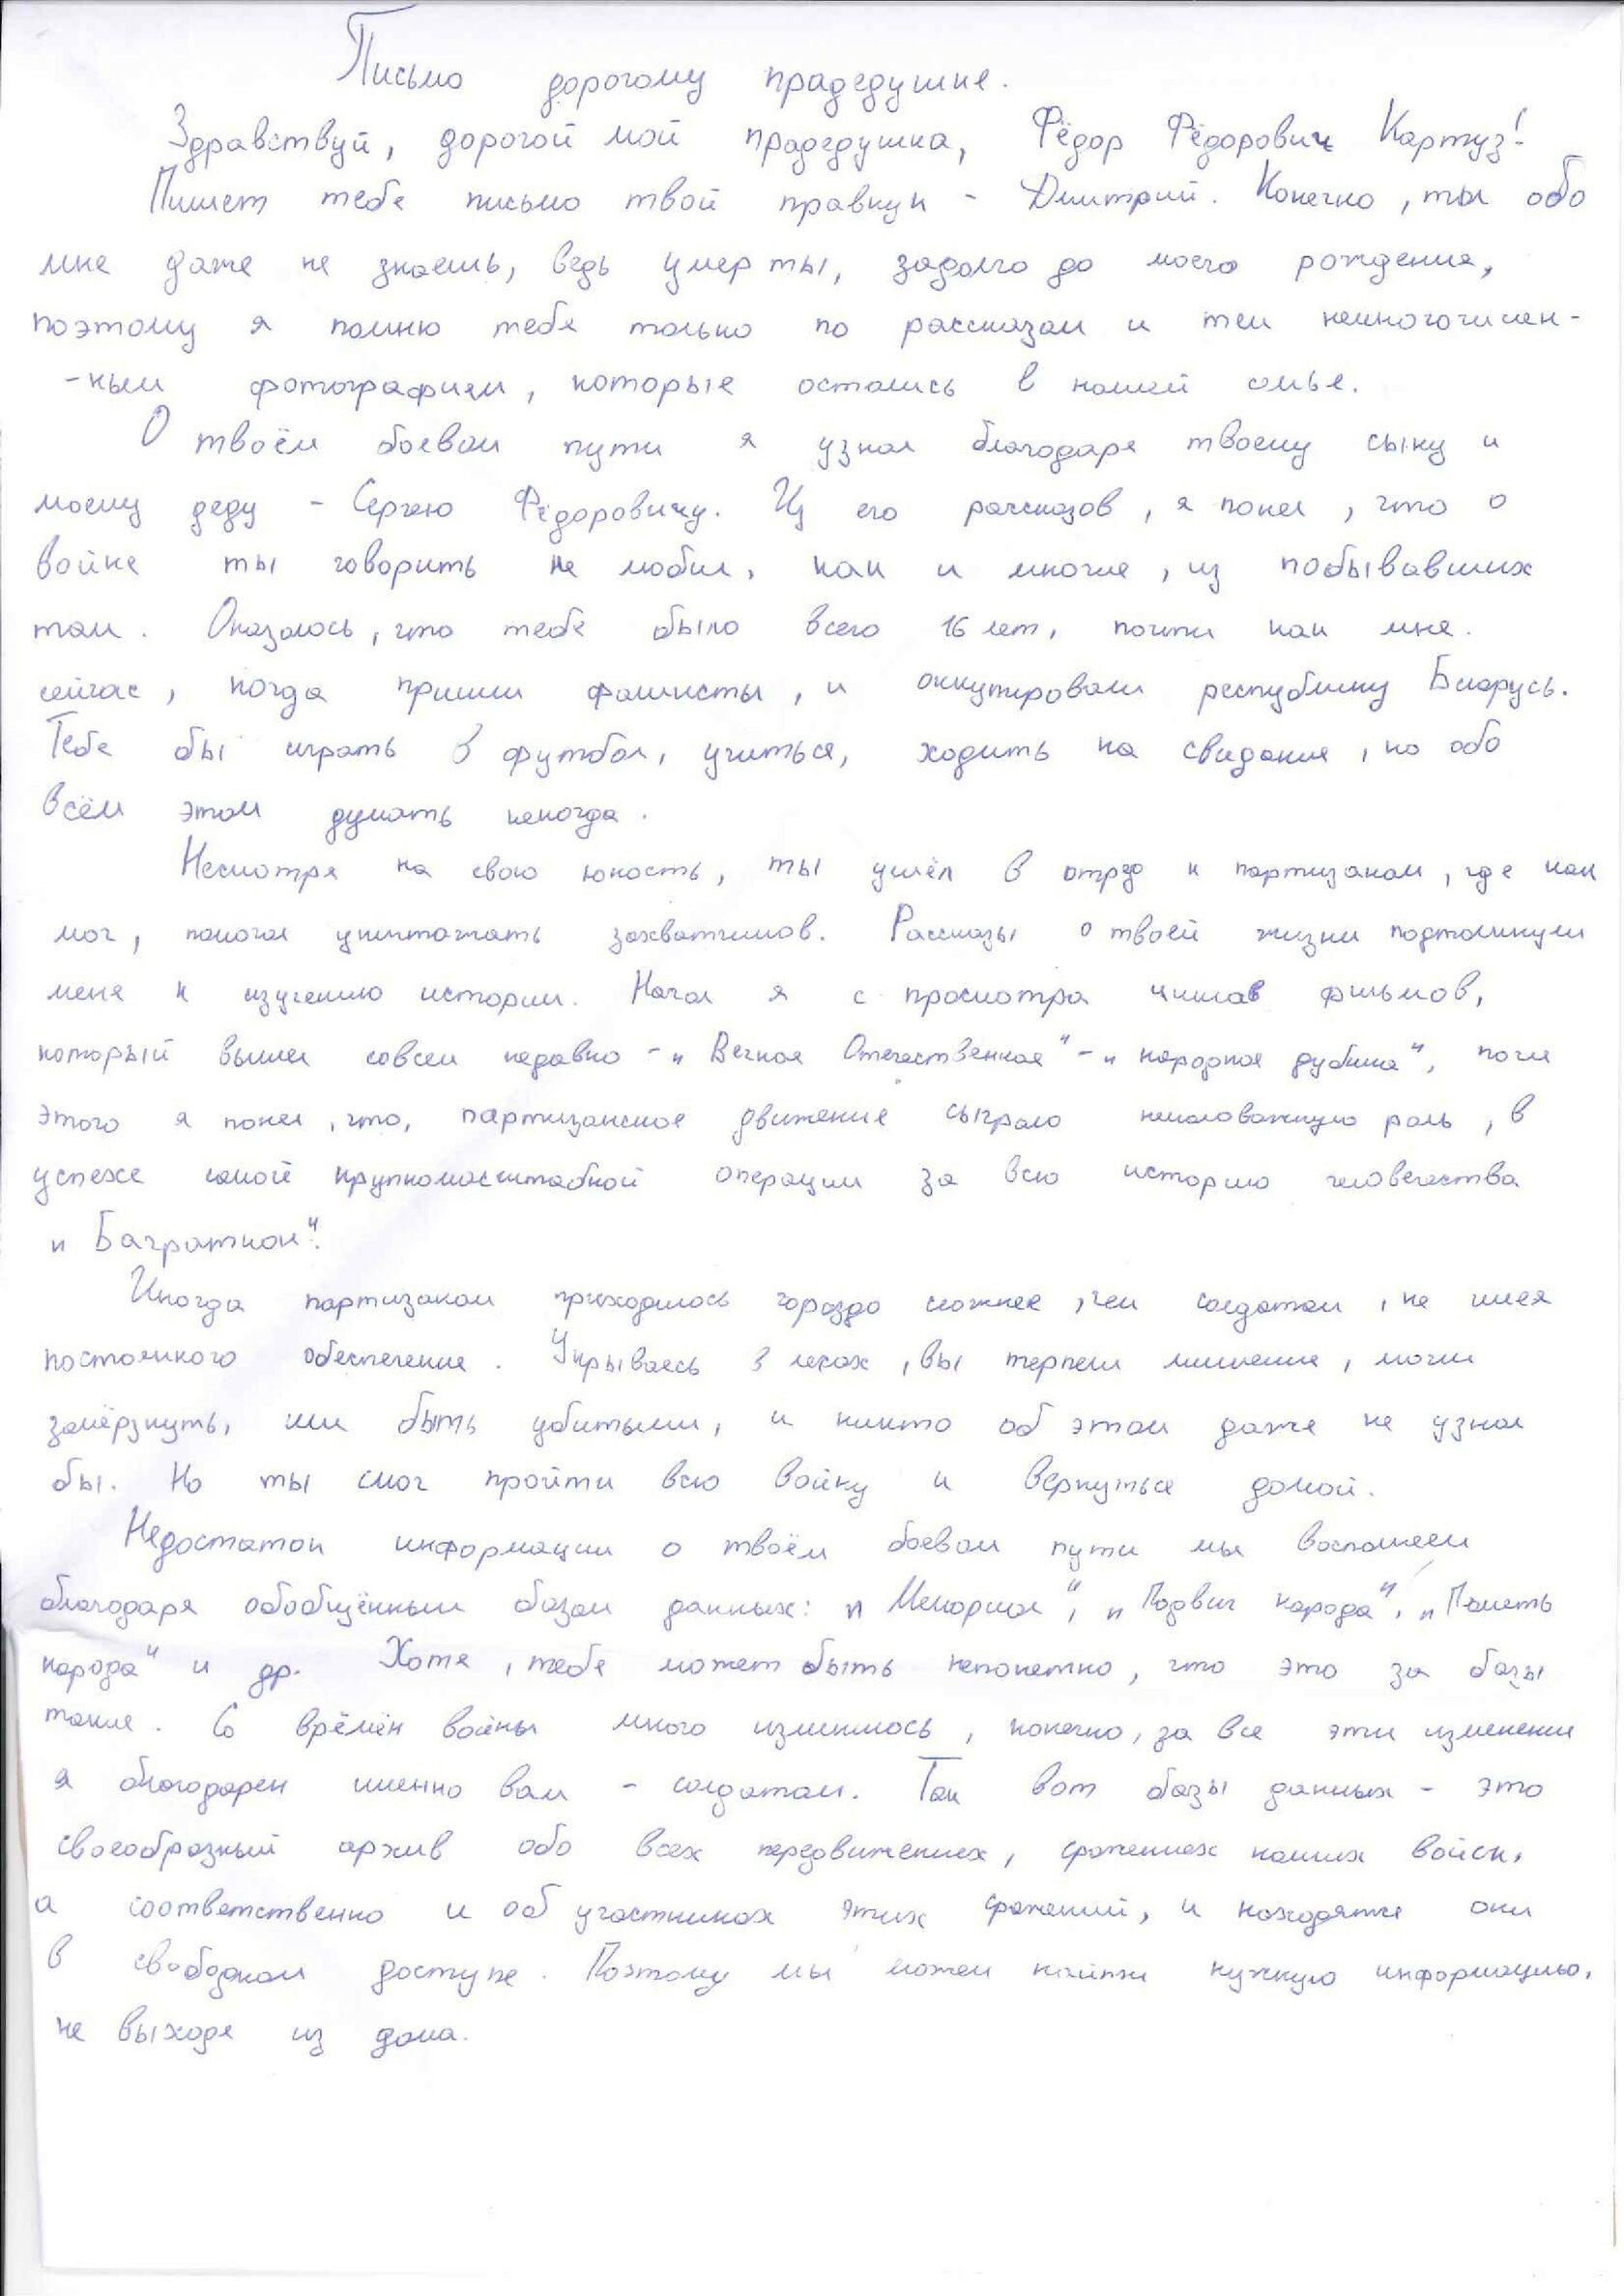 Письмо дорогому прадедушке.
Здравствуй, дорогой мой прадедушка, Фёдор Фёдорович Картуз!
Пишет тебе письмо твой правнук - Дмитрий. Конечно, ты обо
мне даже не знаешь, ведь умер ты, задолго до моего рождения,
поэтому я помню тебя только по рассказам и тем немногочислен-
-ным фотографиям, которые остались в нашей семье.
О твоём боевом пути я узнал благодаря твоему сыну и
моему деду - Сергею Фёдоровичу. Из его рассказов, я понял, что о
войне ты говорить не любил, как и многие, из побывавших
там. Оказалось, что тебе было всего 16 лет, почти как мне.
сейчас, когда пришли фашисты, и оккупировали республику Беларусь.
Тебе бы играть в футбол, учиться, ходить на свидания, но обо
всём этом думать некогда.
Несмотря на свою юность, ты ушёл в отряд к партизанам, где как
мог, помогал уничтожать захватчиков. Рассказы о твоей жизни подтолкнули
меня к изучению истории. Начал я с просмотра цикла фильмов,
который вышел совсем недавно - „Вечная Отечественная" - „народная дубина", после
этого я понял, что, партизанское движение сыграло немаловажную роль, в
успехе самой крупномасштабной операции за всю историю человечества
„Багратион".
Иногда партизанам приходилось гораздо сложнее, чем солдатам, не имея
постоянного обеспечения. Укрываясь в лесах, вы терпели лишения, могли
замёрзнуть, или быть убитыми, и никто об этом даже не узнал
бы. Но ты смог пройти всю войну и вернуться домой.
Недостаток информации о твоём боевом пути мы восполняем
благодаря обобщённым базам данных: „Мемориал", „Подвиг народа", „Память
народа" и др. Хотя, тебе может быть непонятно, что это за базы
такие. Со времён войны много изменилось, конечно, за все эти изменения
я благодарен именно вам - солдатам. Так вот базы данных - это
своеобразный архив обо всех передвижениях, сражениях наших войск,
а соответственно и об участниках этих сражений, и находятся они
в свободном доступе. Поэтому мы можем найти нужную информацию,
не выходя из дома.